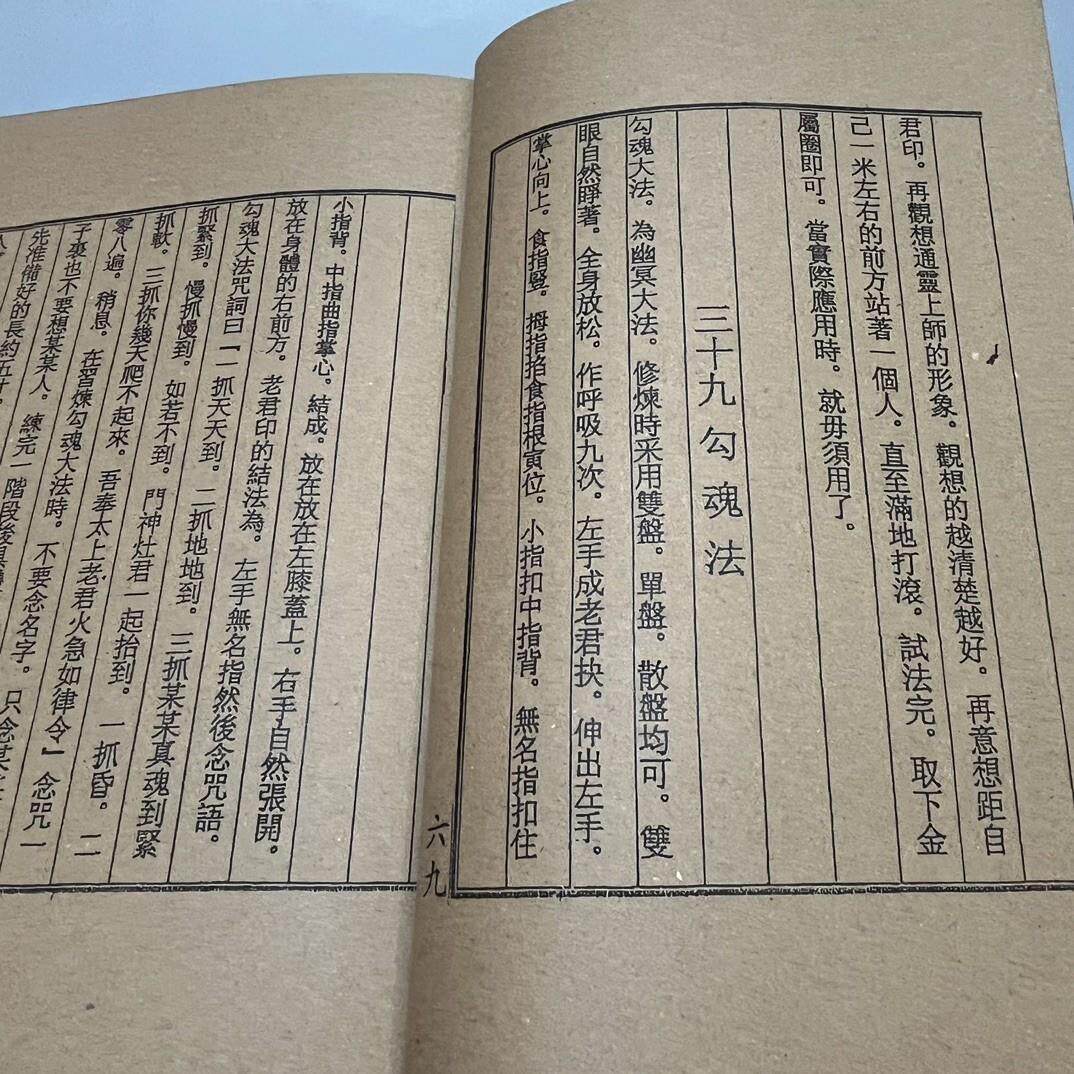 君印。再觀想通靈上師的形象。觀想的越清楚越好。再意想距自
己一米左右的前方站著一個人。直至滿地打滾。試法完。取下金
屬圈即可。當實際應用時。就毋須用了。
三十九勾魂法
勾魂大法。為幽冥大法。修煉時采用雙盤。單盤。散盤均可。雙
眼自然睜著。全身放松。作呼吸九次。左手成老君抉。伸出左手。
掌心向上。食指豎。拇指掐食指根寅位。小指扣中指背。無名指扣住
六九
小指背。中指曲指掌心。結成。放在放在左膝蓋上。右手自然張開。
放在身體的右前方。老君印的結法為。左手無名指然後念咒語。
勾魂大法咒詞曰『一抓天天到。二抓地地到。三抓某某真魂到緊
抓緊到。慢抓慢到。如若不到。門神灶君一起抬到。一抓昏。二
抓軟。三抓你幾天爬不起來。吾奉太上老君火急如律令』念咒一
零八遍。稍息。在習煉勾魂大法時。不要念名字。只念某
子裏也不要想某某人。練完一階段後
先准備好的長約五寸。